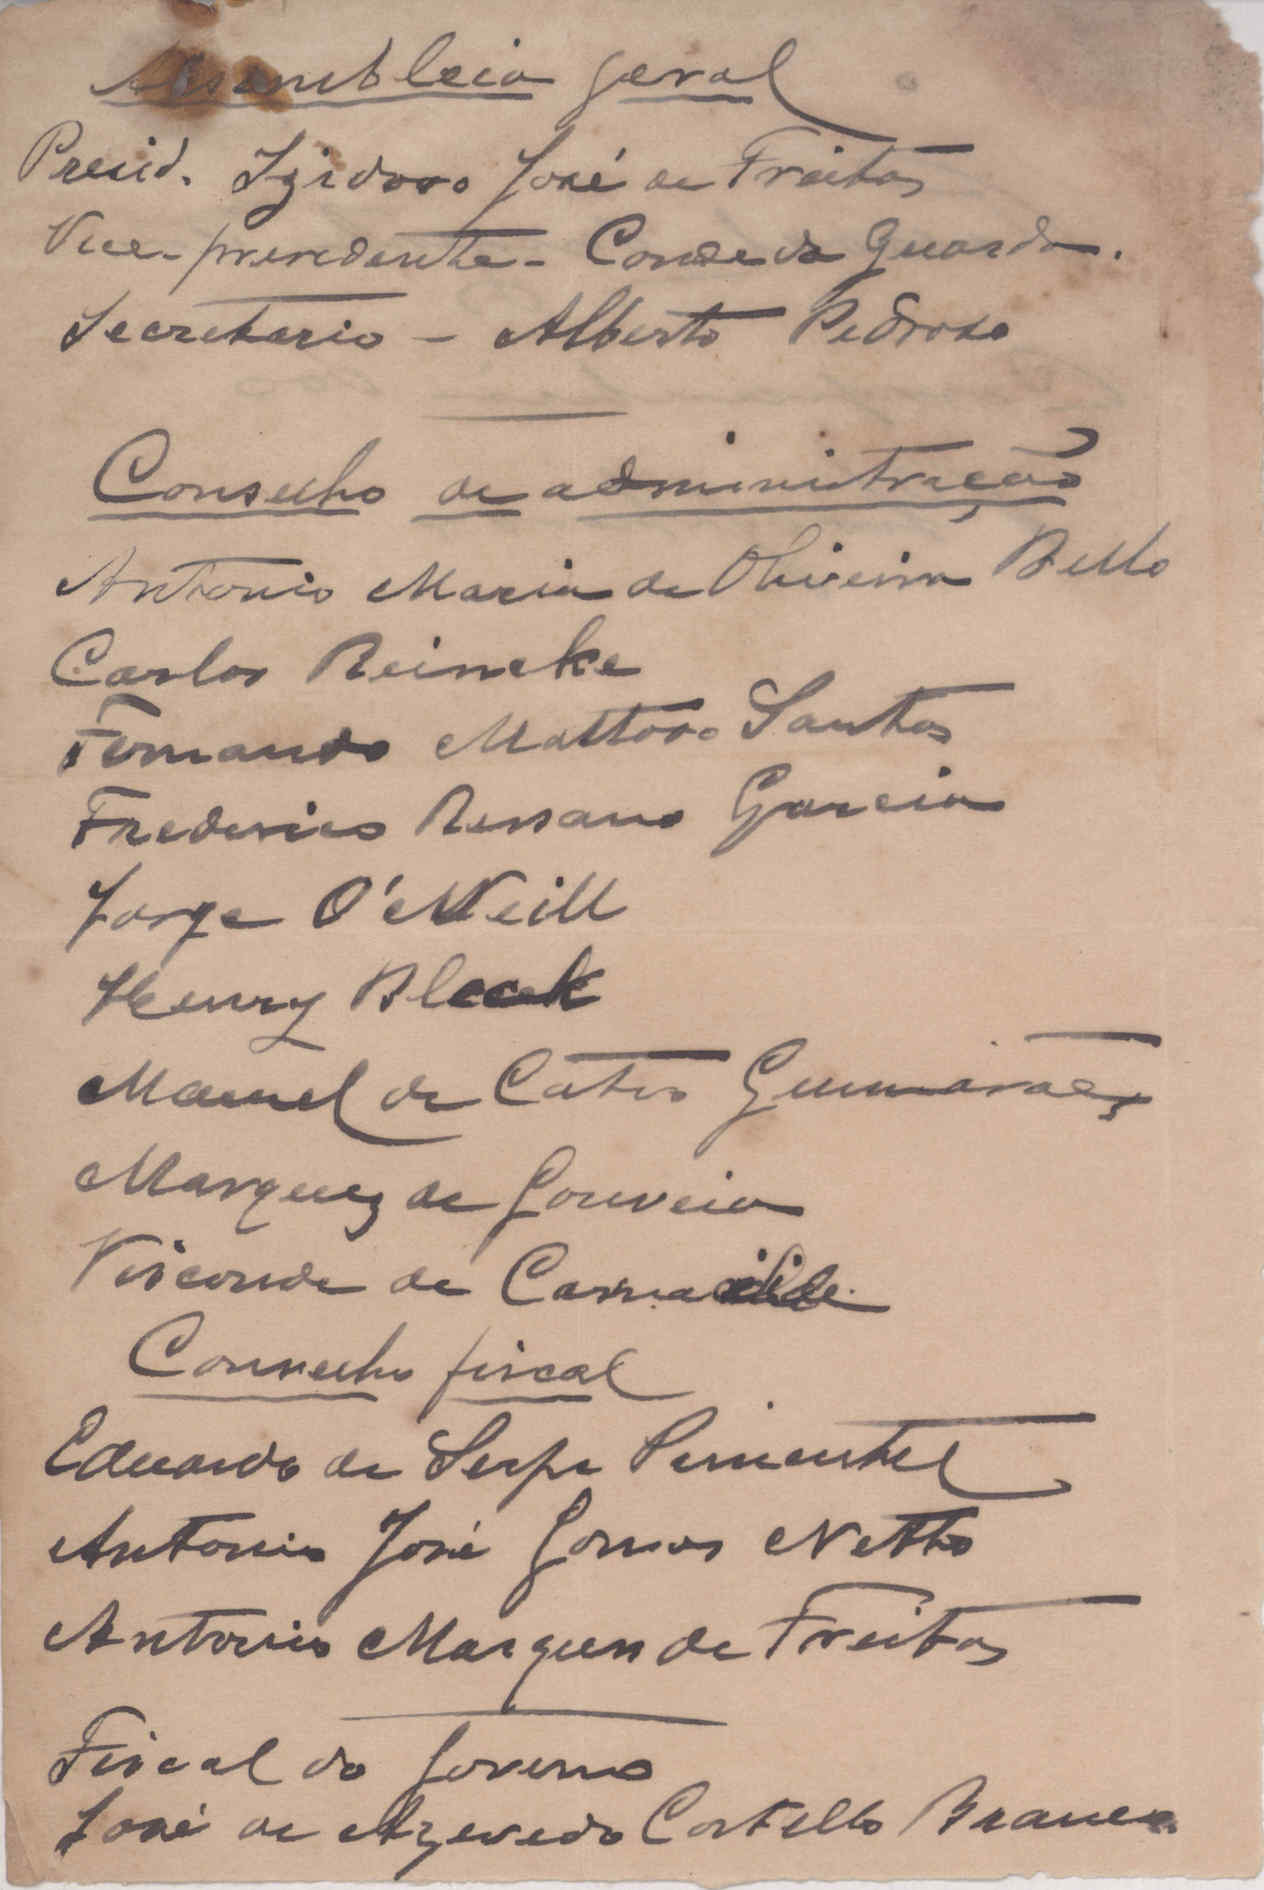 Assembleia geral
Presid. Izidoro José de Freitas
Vice-presidente - Conde da Guarda.
Secretario - Alberto Pedroso
Conselho de administração
Antonio Maria de Oliveira Bello
Carlos Reincke
Fernando Mattoso Santos
Frederico Ressano Garcia
Jorge O'Neill
Henry Bleck
Manuel de Castro Guimarães
Marquez de Gouveia
Visconde de Carnaxide
Conselho fiscal
Eduardo de Serpa Pimentel
Antonio José Gomes Netto
Antonio Marques de Freitas
Fiscal do governo
José de Azevedo Castello Branco